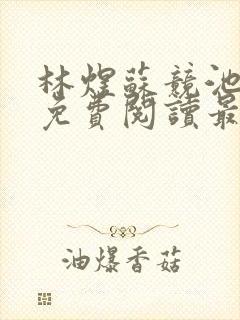 林煜蘇競池
免費閱讀最
油爆香菇